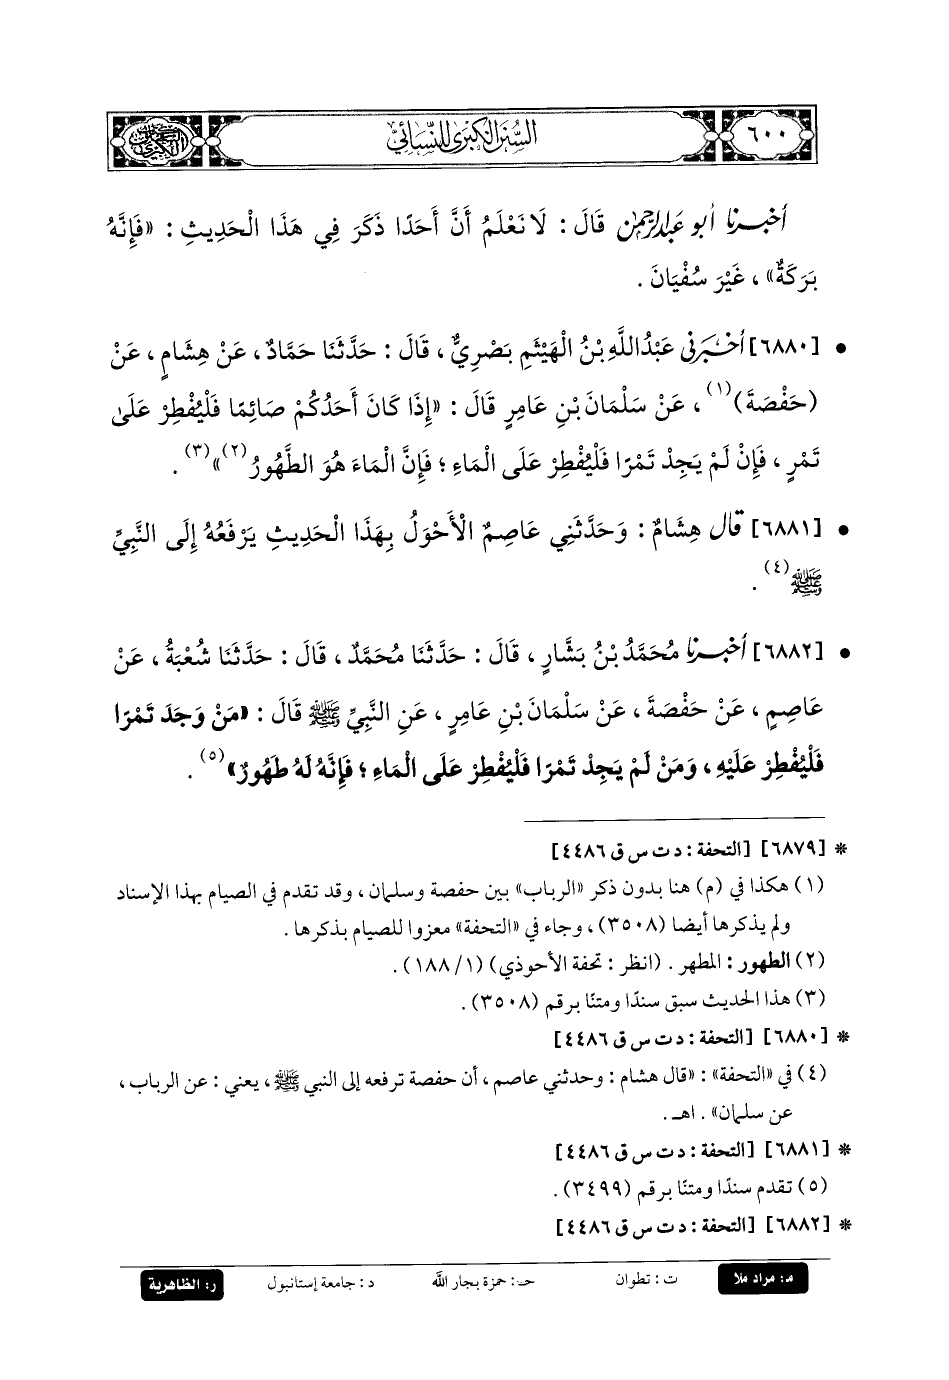 ٦٠٠
السنن الكبرى للنسائي
أخبرنا أبو عبدالرحمن قَالَ : لَا نَعْلَمُ أَنَّ أَحَدًا ذَكَرَ فِي هَذَا الْحَدِيثِ : «فَإِنَّهُ
بَرَكَةٌ» ، غَيْرَ سُفْيَانَ .
• [٦٨٨٠] أخبرني عَبْدُاللَّهِ بْنُ الْهَيْثَمِ بَصْرِيٌّ ، قَالَ : حَدَّثَنَا حَمَّادٌ ، عَنْ هِشَامٍ ، عَنْ
(حَفْصَةَ)(١) ، عَنْ سَلْمَانَ بْنِ عَامِرٍ قَالَ : «إِذَا كَانَ أَحَدُكُمْ صَائِمًا فَلْيُفْطِرْ عَلَى
تَمْرٍ ، فَإِنْ لَمْ يَجِدْ تَمْرًا فَلْيُفْطِرْ عَلَى الْمَاءِ ؛ فَإِنَّ الْمَاءَ هُوَ الطَّهُورُ(٢)»(٣) .
• [٦٨٨١] قال هِشَامٌ : وَحَدَّثَنِي عَاصِمٌ الْأَحْوَلُ بِهَذَا الْحَدِيثِ يَرْفَعُهُ إِلَى النَّبِيِّ
ﷺ(٤) .
• [٦٨٨٢] أخبرنا مُحَمَّدُ بْنُ بَشَّارٍ ، قَالَ : حَدَّثَنَا مُحَمَّدٌ ، قَالَ : حَدَّثَنَا شُعْبَةُ ، عَنْ
عَاصِمٍ ، عَنْ حَفْصَةَ ، عَنْ سَلْمَانَ بْنِ عَامِرٍ ، عَنِ النَّبِيِّ ﷺ قَالَ : «مَنْ وَجَدَ تَمْرًا
فَلْيُفْطِرْ عَلَيْهِ ، وَمَنْ لَمْ يَجِدْ تَمْرًا فَلْيُفْطِرْ عَلَى الْمَاءِ ؛ فَإِنَّهُ لَهُ طَهُورٌ»(٥) .
* [٦٨٧٩] [التحفة : د ت س ق ٤٤٨٦]
(١) هكذا في (م) هنا بدون ذكر «الرباب» بين حفصة وسلمان ، وقد تقدم في الصيام بهذا الإسناد
ولم يذكرها أيضا (٣٥٠٨) ، وجاء في «التحفة» معزوا للصيام بذكرها .
(٢) الطهور : المطهر . (انظر : تحفة الأحوذي) (١/ ١٨٨) .
(٣) هذا الحديث سبق سندًا ومتنًا برقم (٣٥٠٨) .
* [٦٨٨٠] [التحفة : د ت س ق ٤٤٨٦]
(٤) في «التحفة» : «قال هشام : وحدثني عاصم ، أن حفصة ترفعه إلى النبي ﷺ ، يعني : عن الرباب ،
عن سلمان» . اهـ .
* [٦٨٨١] [التحفة : د ت س ق ٤٤٨٦]
(٥) تقدم سندًا ومتنًا برقم (٣٤٩٩) .
* [٦٨٨٢] [التحفة : د ت س ق ٤٤٨٦]
م: مراد ملا ت : تطوان حـ: حمزة بجار الله د : جامعة إستانبول ر: الظاهرية